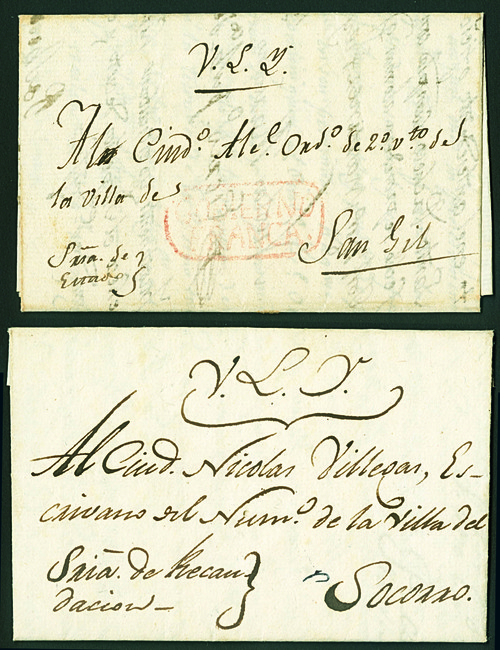 V. L. Y.
Al Ciud.º Alc.e Ord.º de 2º v.to de
la Villa de
GOBIERNO
FRANCA.
San Gil
Sria. de
Estado
V. L. Y.
Al Ciud. Nicolas Villegas, Es-
crivano del Num.º de la Villa del
Sria. de Recau-
dacion
Socorro.